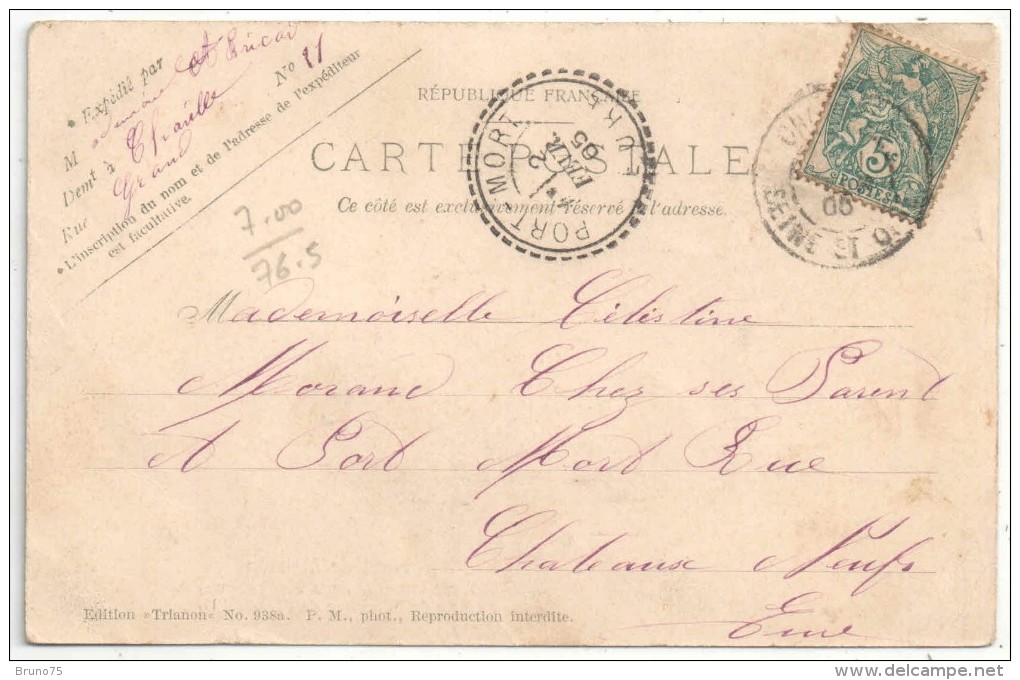 • Expédié par
M
Demt à
Rue Grand No 21
• L'inscription du nom et de l'adresse de l'expéditeur
est facultative.
RÉPUBLIQUE FRANÇAISE
CARTE POSTALE
Ce côté est exclusivement réservé à l'adresse.
PORT-MORT
EURE
2
FEVR
05
5
POSTES
SEINE ET O
05
7.00
76.5
Mademoiselle Célestine
Morand Chez ses Parent
A Port Mort Rue
Chateaux Neufs
Eure
Edition «Trianon» No. 938a. P. M., phot., Reproduction interdite.
Bruno75
www.delcampe.net